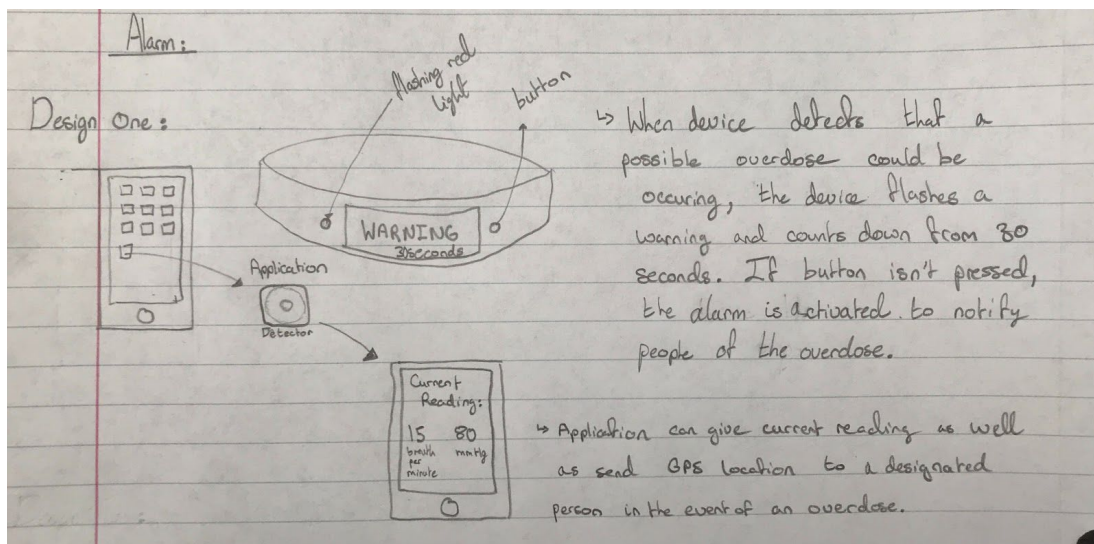 Alarm:
Design One:
flashing red
light
button
WARNING
30seconds
Application
Detector
Current
Reading:
15 80
breath mmHg
per
minute
↳ When device detects that a
possible overdose could be
occuring, the device flashes a
warning and counts down from 30
seconds. If button isn't pressed,
the alarm is activated. to notify
people of the overdose.
↳ Application can give current reading as well
as send GPS location to a designated
person in the event of an overdose.